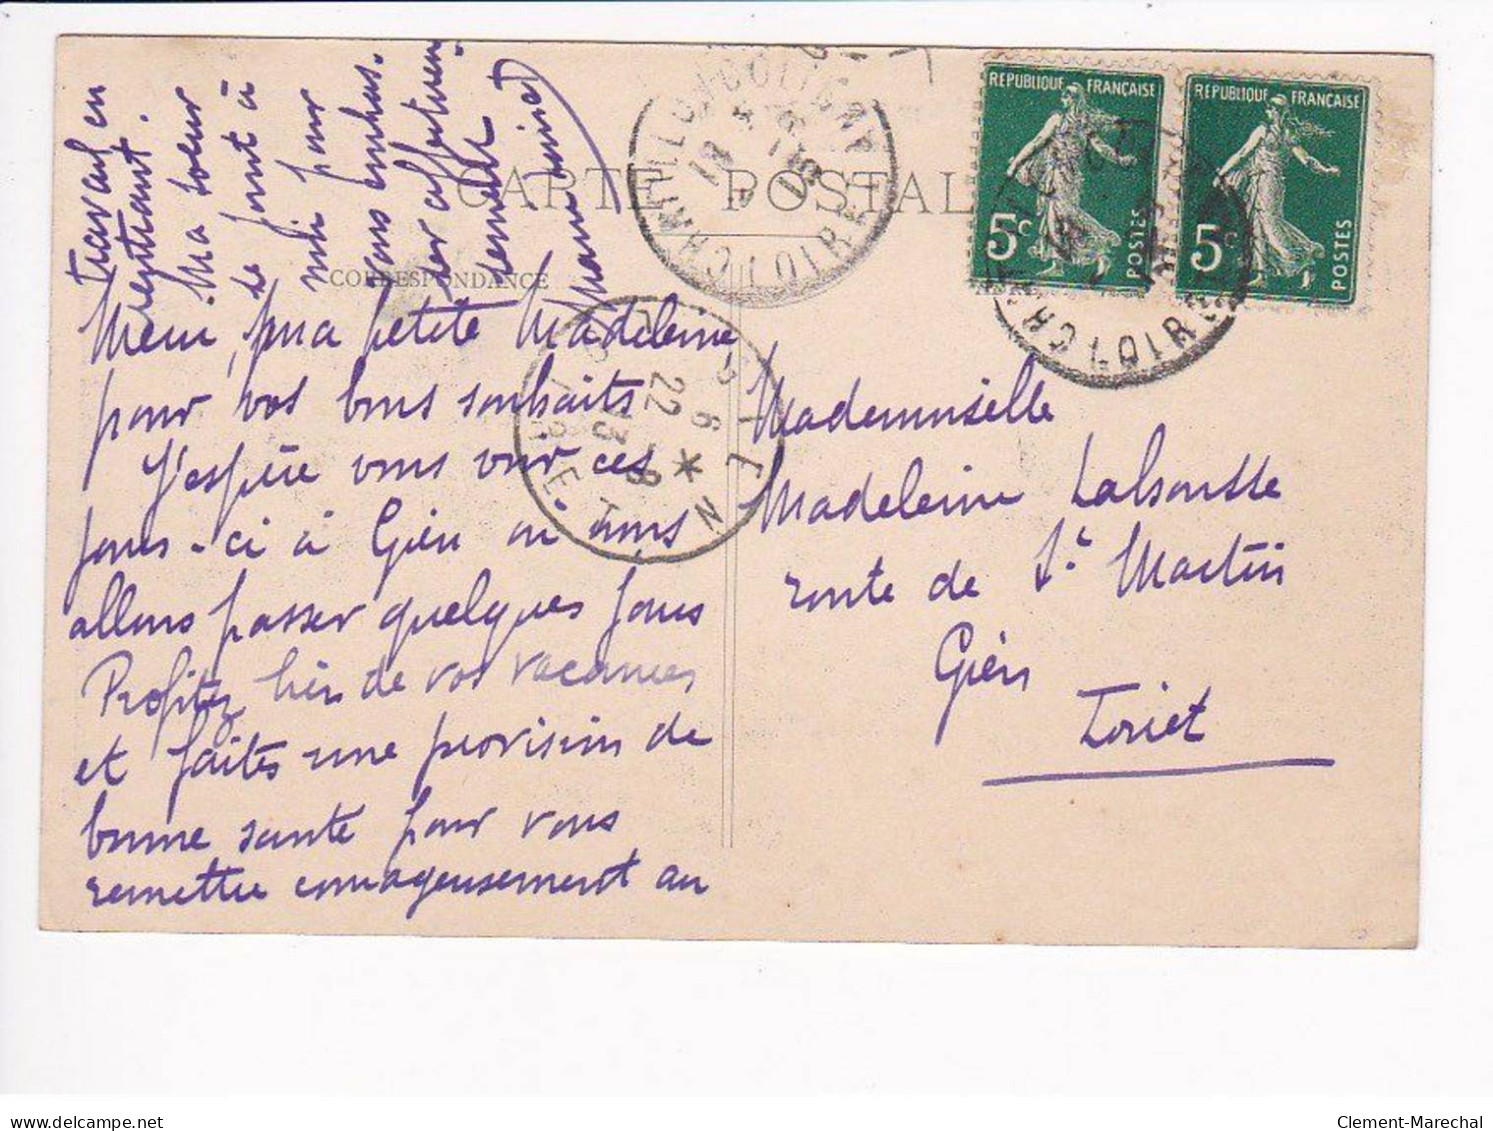 CARTE POSTALE
CORRESPONDANCE
Merci, ma petite Madeleine,
pour vos bons souhaits
J'espère vous voir ces
jours-ci à Gien où nous
allons passer quelques jours
Profitez bien de vos vacances
et faites une provision de
bonne santé pour vous
remettre courageusement au
travail en
rentrant.
Ma soeur
se joint à
moi pour
vous embras-
ser affectueu-
sement
CHATILLON COLIGNY
LOIRET
22
13
LOIRET
REPUBLIQUE FRANÇAISE
5c
POSTES
REPUBLIQUE FRANÇAISE
5c
POSTES
Mademoiselle
Madeleine
route de St Martin
Gien
Loiret
delcampe.net
Clement-Marechal